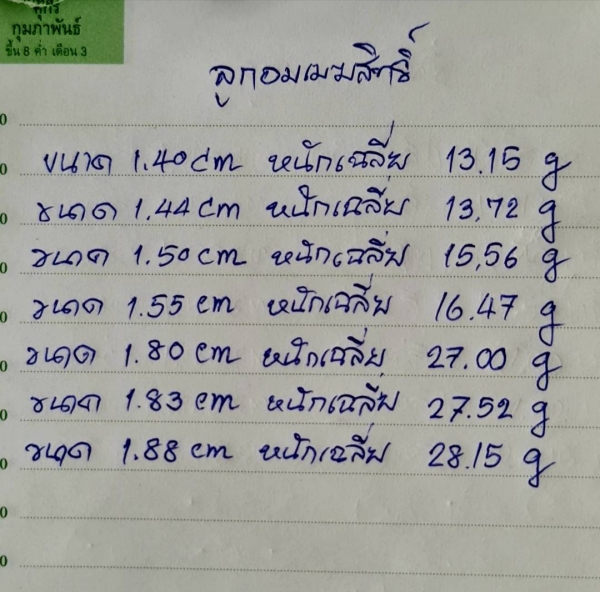 ศุกร์
กุมภาพันธ์
ขึ้น 8 ค่ำ เดือน 3
ลูกอมเมฆสิทธิ์
0
ขนาด 1.40 cm หนักเฉลี่ย 13.15 g
0
ขนาด 1.44 cm หนักเฉลี่ย 13.72 g
0
ขนาด 1.50 cm หนักเฉลี่ย 15.56 g
0
ขนาด 1.55 cm หนักเฉลี่ย 16.47 g
0
ขนาด 1.80 cm หนักเฉลี่ย 27.00 g
0
ขนาด 1.83 cm หนักเฉลี่ย 27.52 g
0
ขนาด 1.88 cm หนักเฉลี่ย 28.15 g
0
0
0